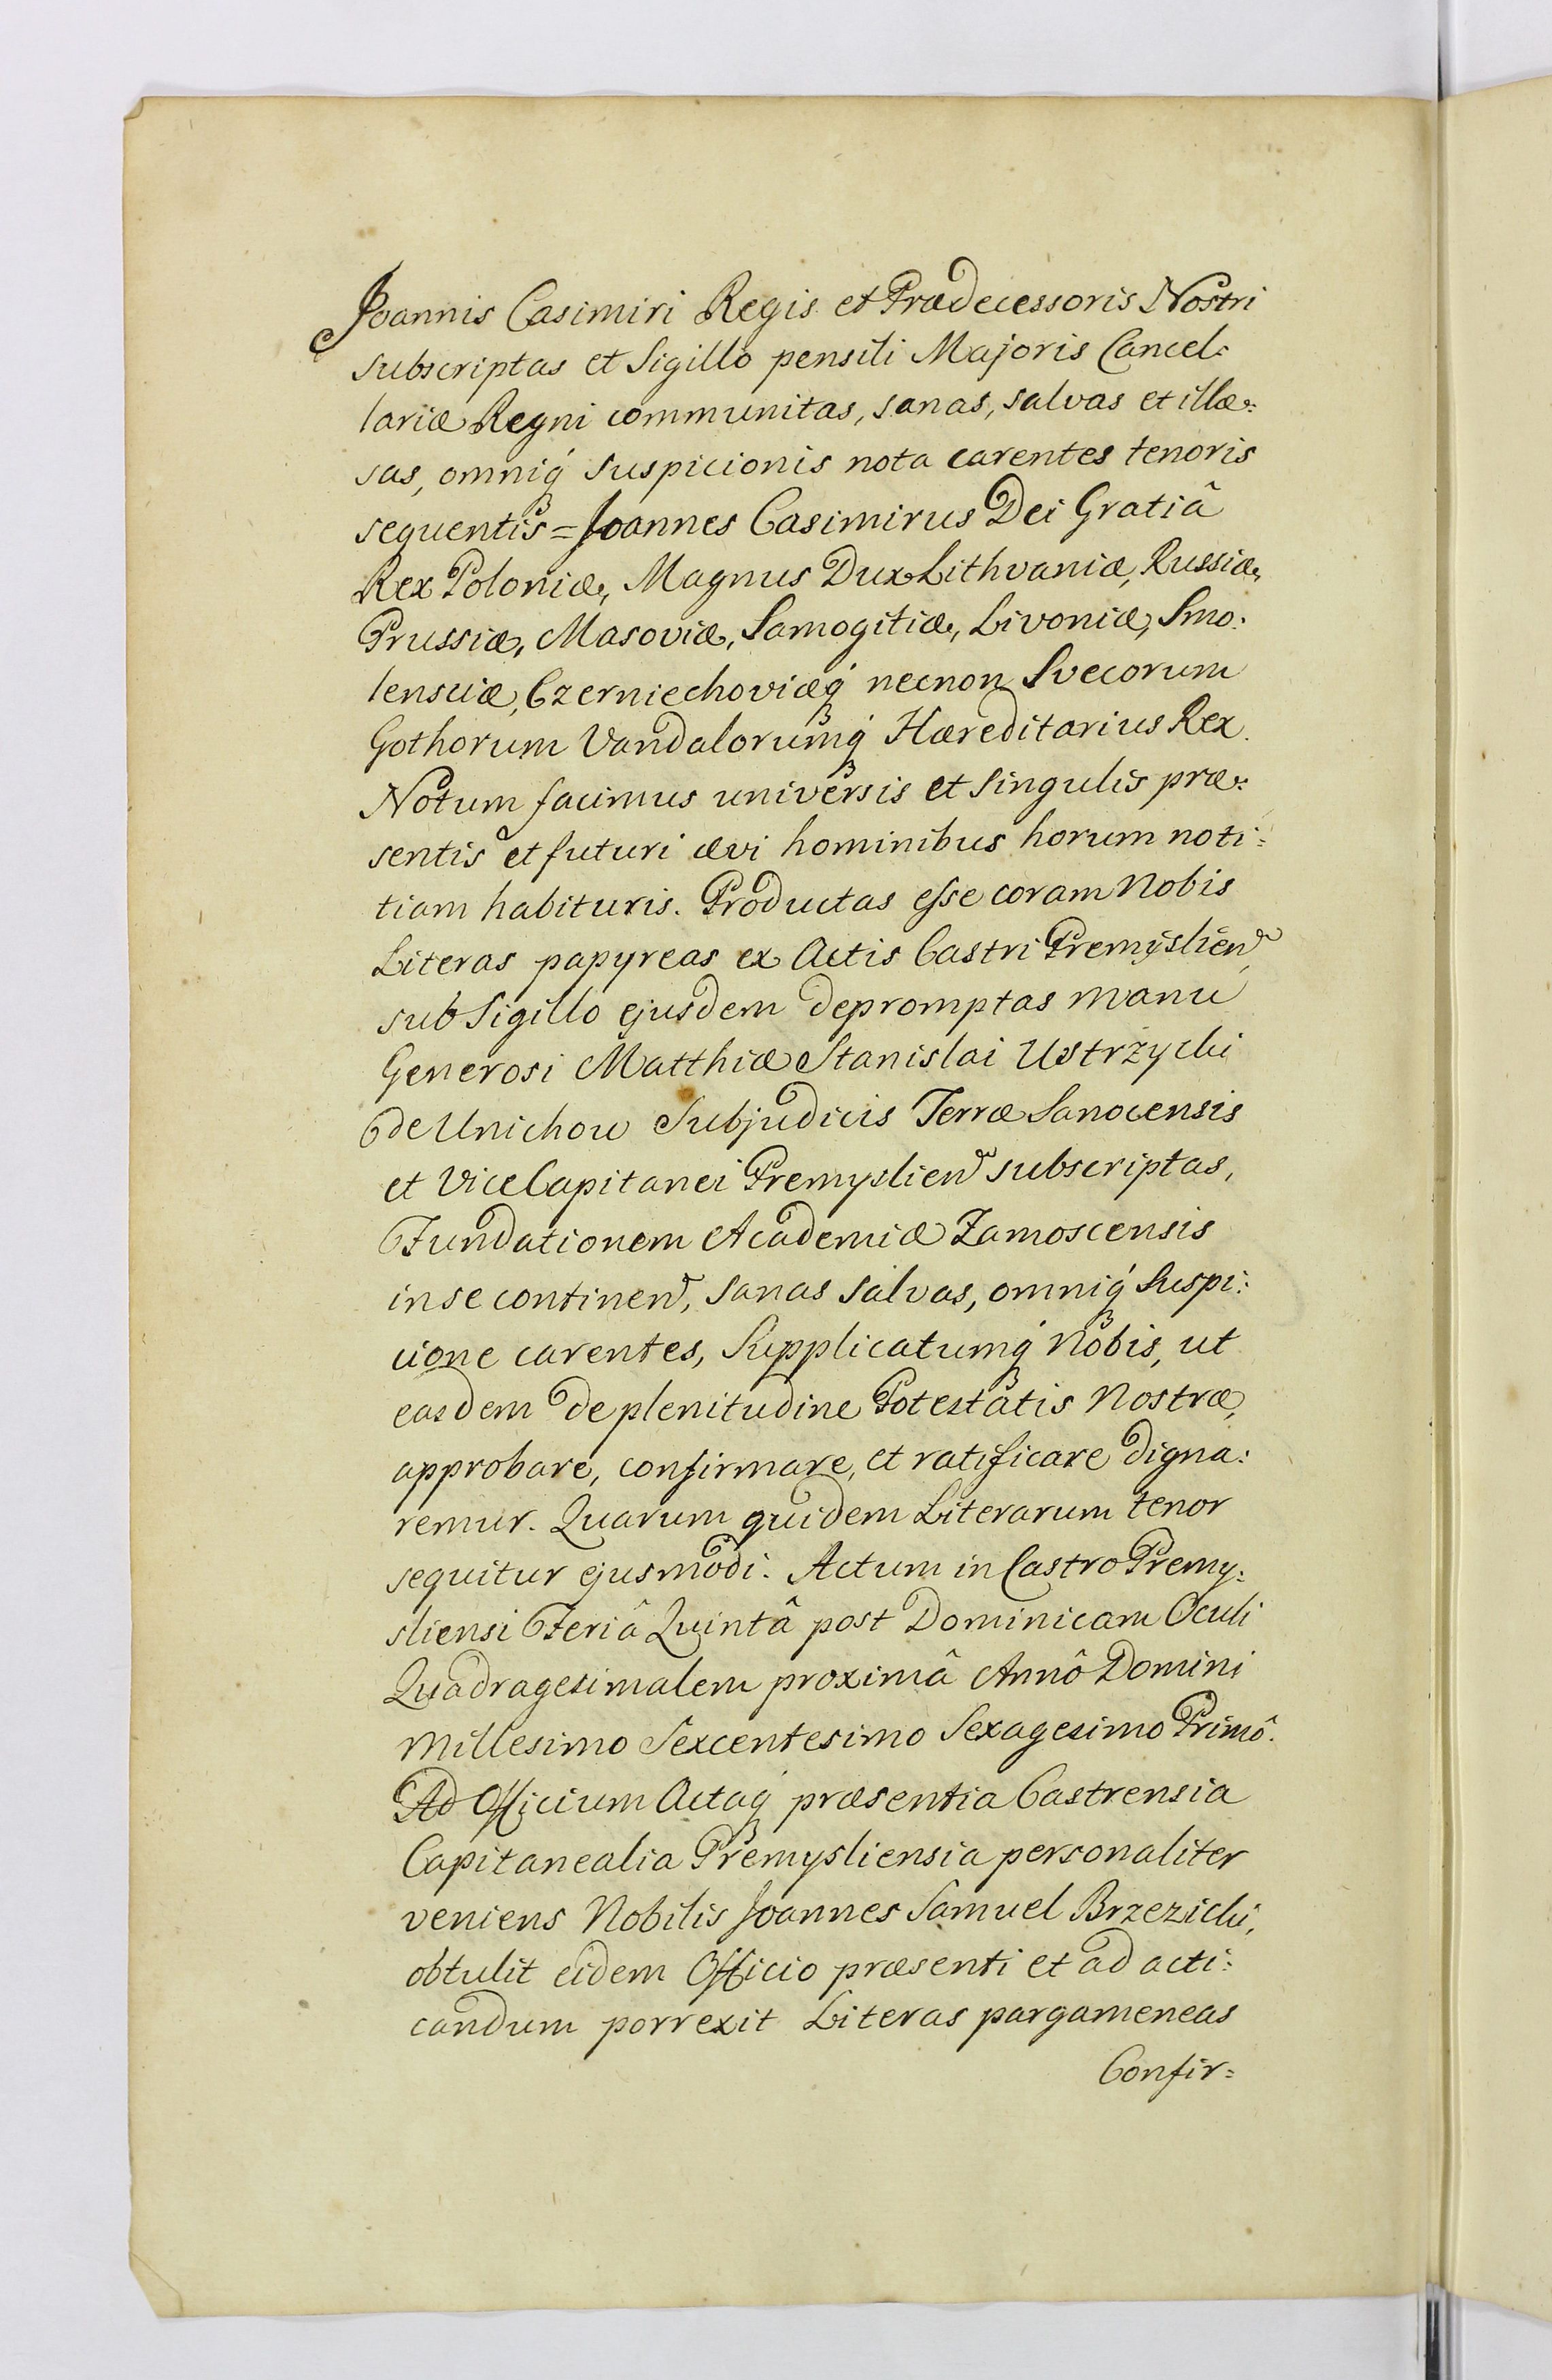 Joannis Casimiri Regis et Prædecessoris Nostri
subscriptas et Sigillo pensili Majoris Cancel:
lariæ Regni communitas, sanas, salvas et illæ:
sas, omniq́ꝫ suspicionis nota carentes tenoris
sequentis = Joannes Casimirus Dei Gratiâ
Rex Poloniæ, Magnus Dux Lithvaniæ, Russiæ,
Prussiæ, Masoviæ, Samogitiæ, Livoniæ, Smo:
lensciæ, Czerniechoviæq́ꝫ necnon Svecorum
Gothorum Vandalorumq́ꝫ Hæreditarius Rex.
Notum facimus universis et singulis præ:
sentis et futuri ævi hominibus horum noti:
tiam habituris. Productas esse coram Nobis
Literas papyreas ex Actis Castri Premÿslien̄,
sub Sigillo ejusdem depromptas manu
Generosi Matthiæ Stanislai Ustrzycki
de Unichow Subjudicis Terræ Sanocensis
et ViceCapitanei Premyslien̄ subscriptas,
Fundationem Academiæ Zamoscensis
in se continen̄, sanas salvas, omniq́ꝫ Suspi:
cione carentes, Supplicatumq́ꝫ Nobis, ut
easdem de plenitudine Potestatis Nostræ,
approbare, confirmare, et ratificare digna:
remur. Quarum quidem Literarum tenor
sequitur ejusmodi. Actum in Castro Premy:
sliensi Feriâ Quintâ post Dominicam Oculi
Quadragesimalem proximâ Annô Domini
Millesimo Sexcentesimo Sexagesimo Primô.
Ad Officium Actaq́ꝫ præsentia Castrensia
Capitanealia Premysliensia personaliter
veniens Nobilis Joannes Samuel Brzezicki,
obtulit eidem Officio præsenti et ad acti:
candum porrexit Literas pargameneas
Confir=